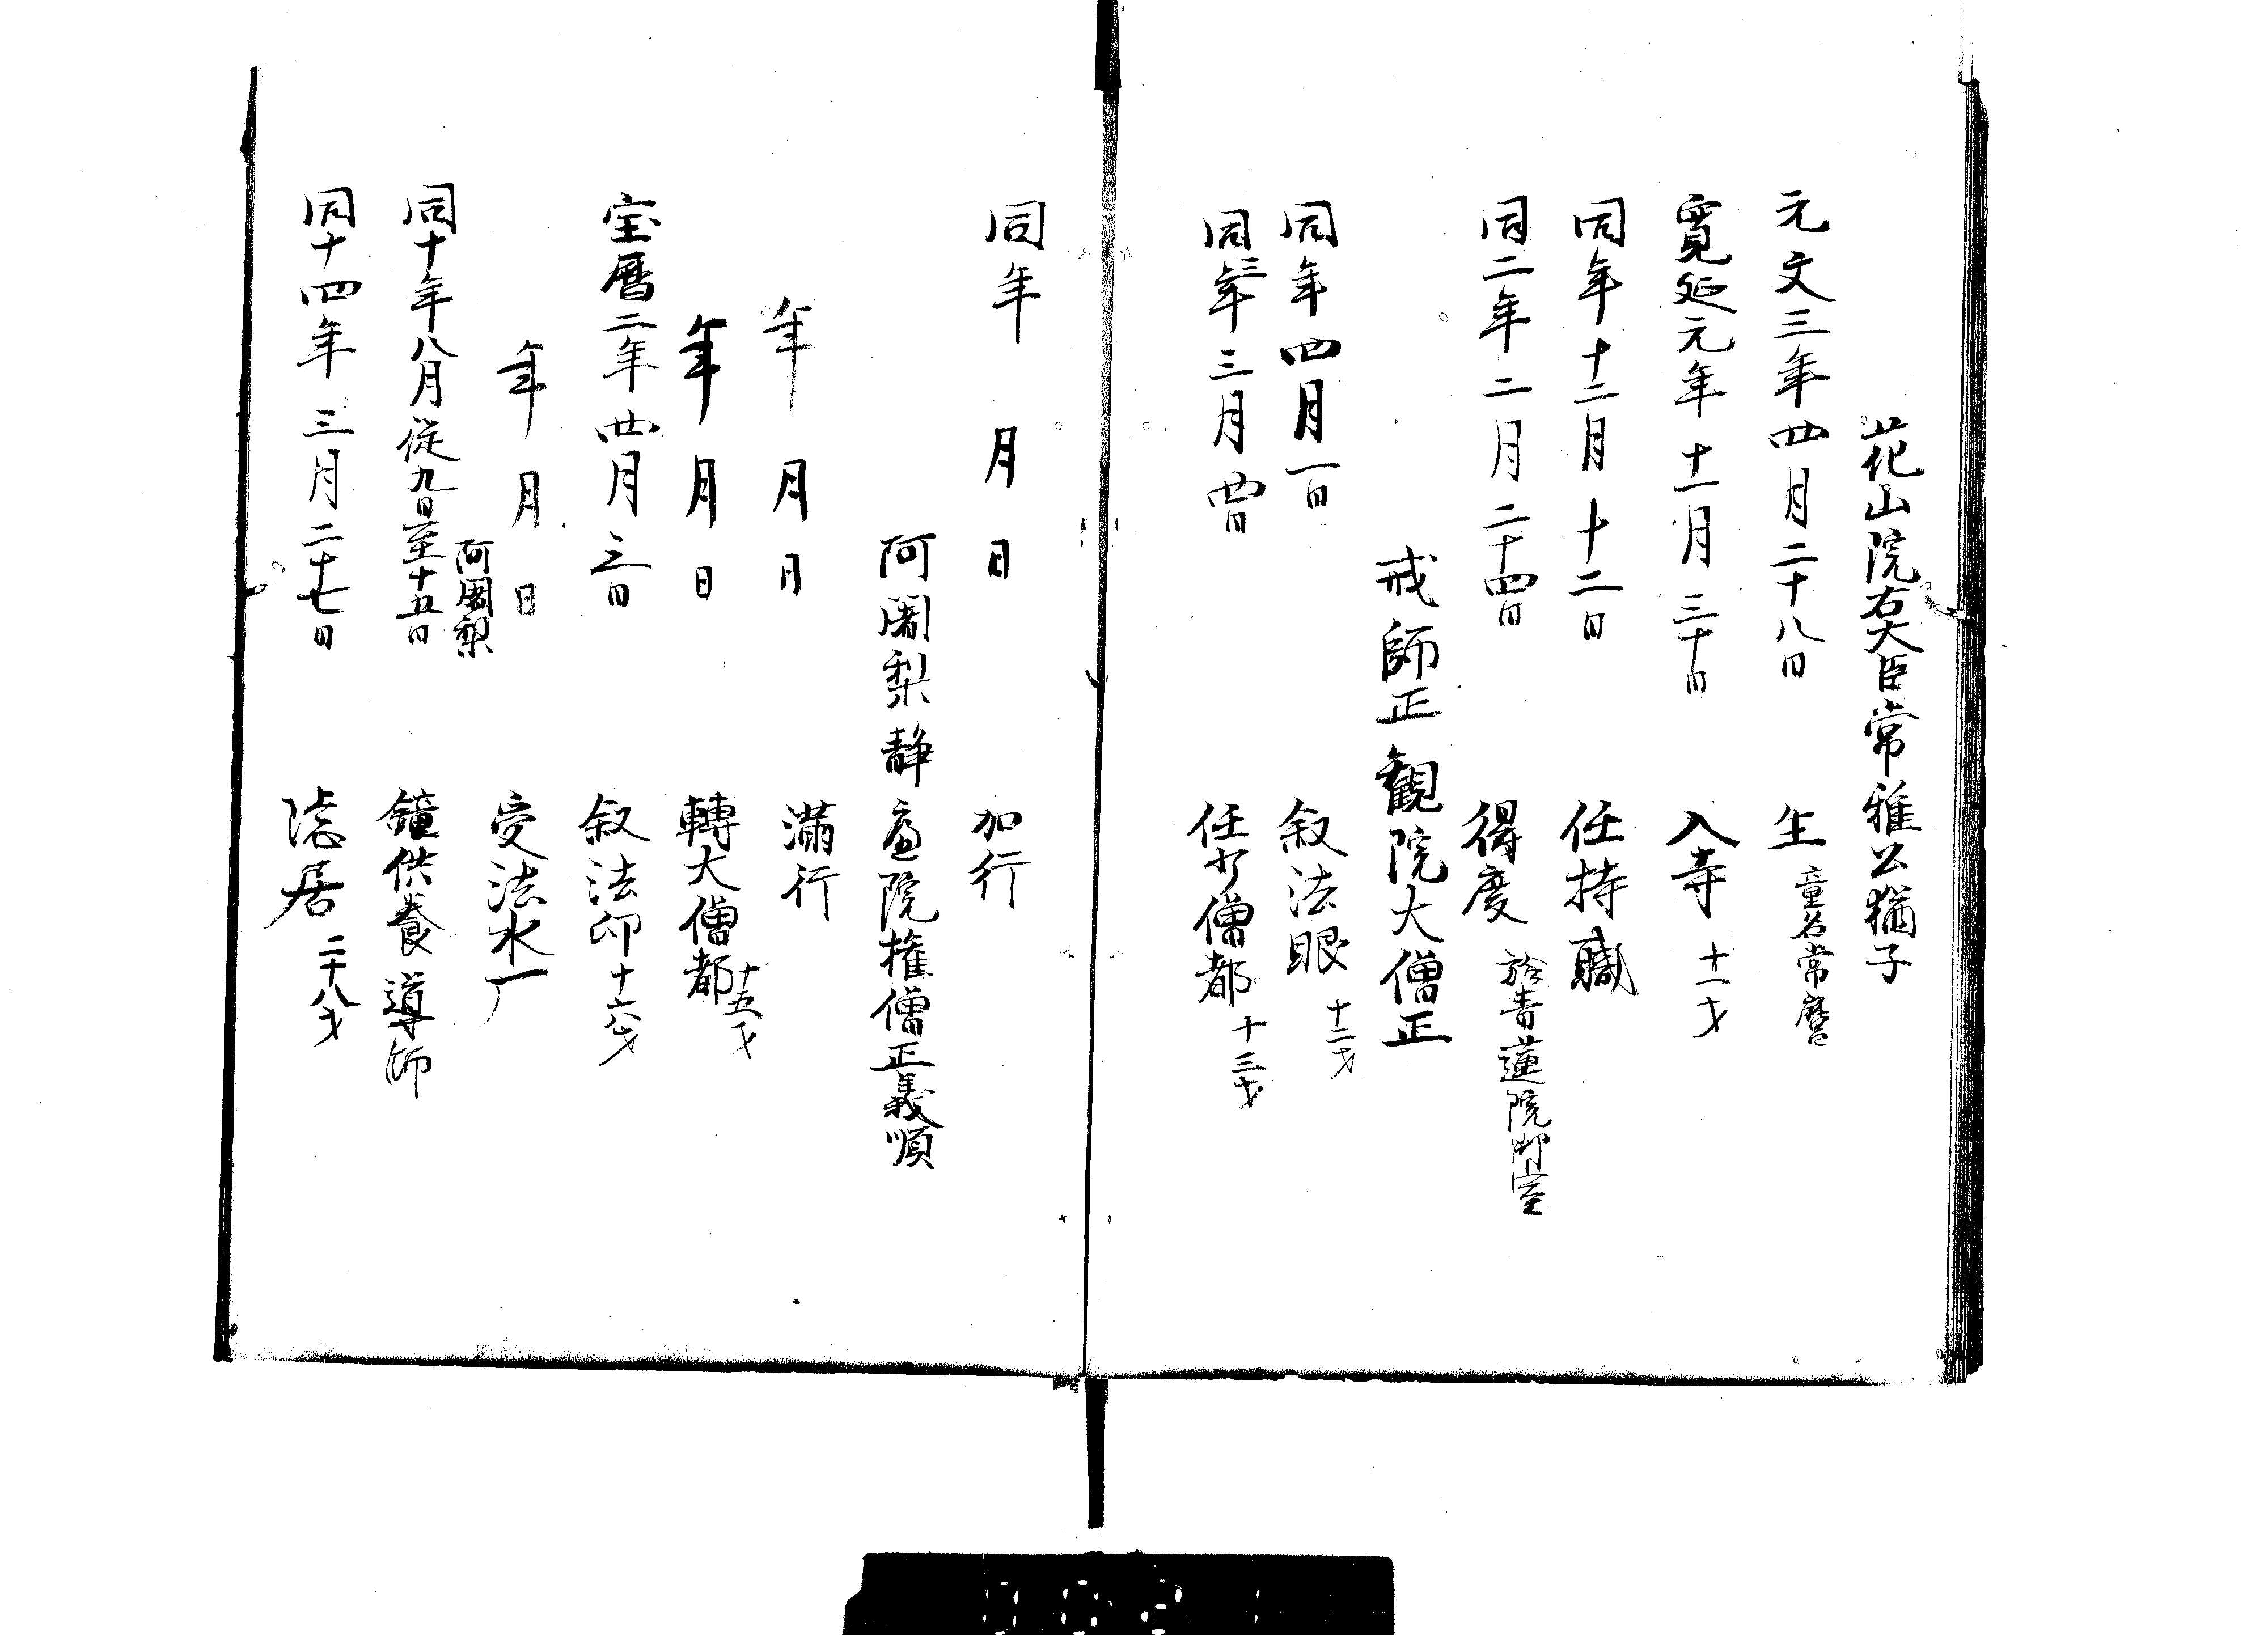 花山院右大臣常雅公猶子
元文三年四月二十八日　生　童名常麿
寛延元年十一月三十日　入寺　十一才
同年十二月十二日　任持職
同二年二月二十四日　得度　於青蓮院御室
戒師正観院大僧正
同年四月一日　叙法眼　十二才
同三年三月四日　任少僧都　十三才
同年　月　日　加行
阿闍梨静慮院権僧正義順
年　月　日　満行
年　月　日　轉大僧都　十五才
宝暦二年四月三日　叙法印　十六才
年　月　日　受法水厂
阿闍梨
同十年八月從九日至十五日　鐘供養導師
同十四年三月二十七日　隠居　二十八才